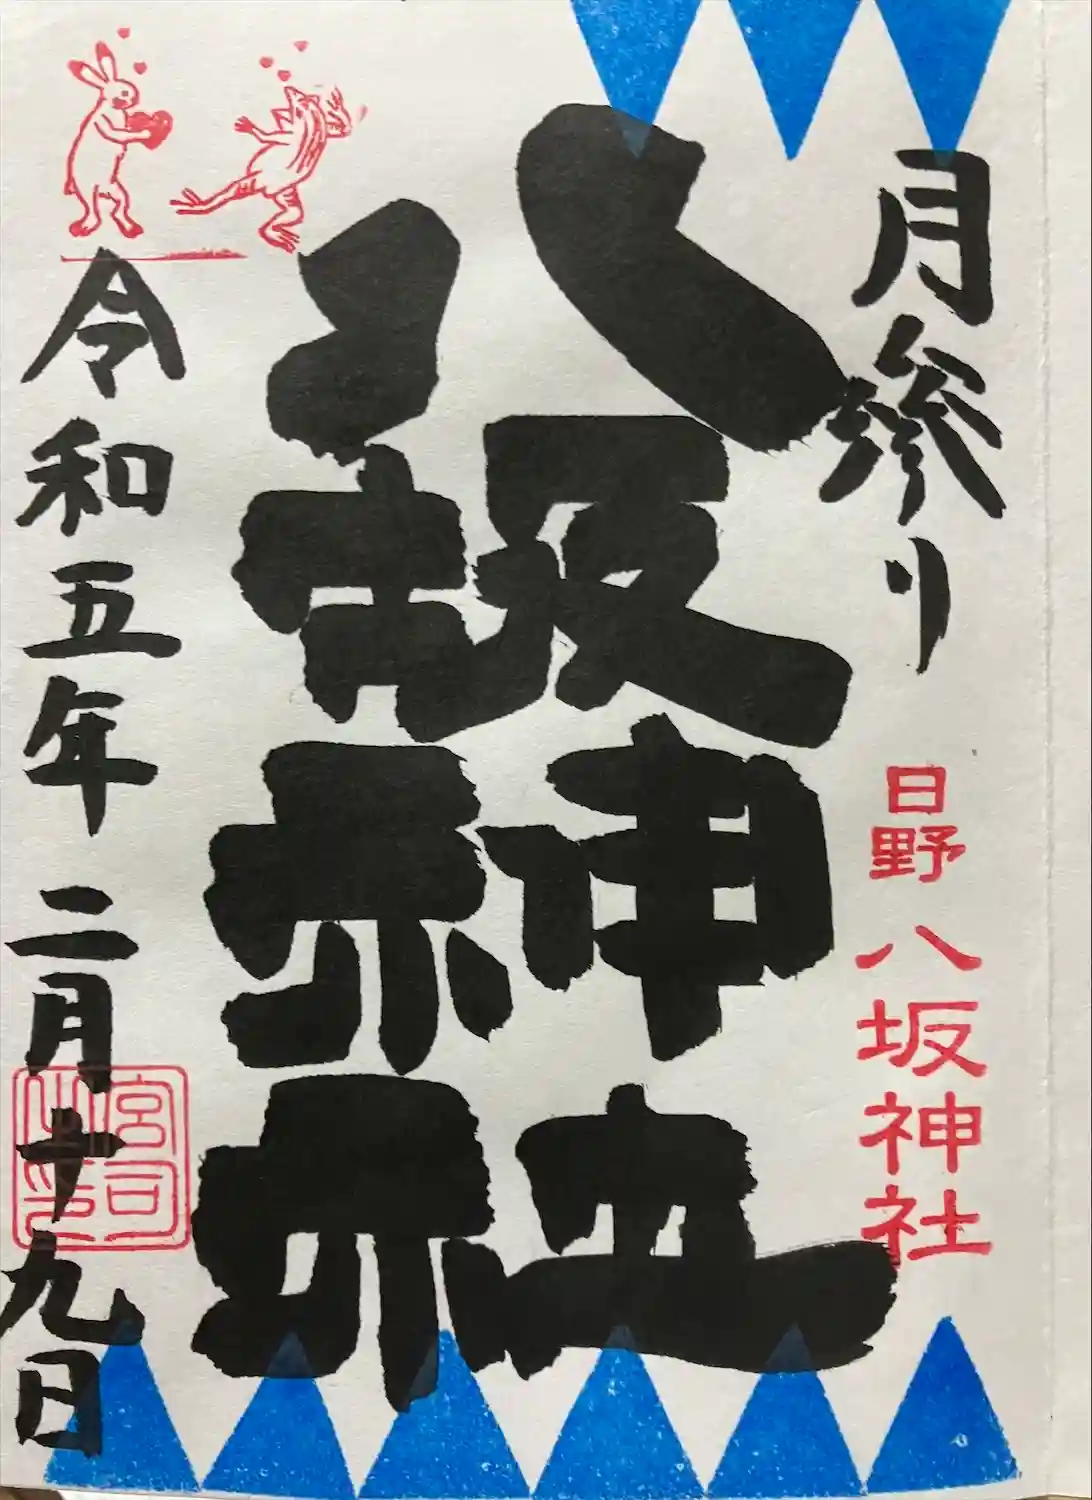 月参り
日野 八坂神社
八坂神社
令和五年 二月十九日
宮司之印